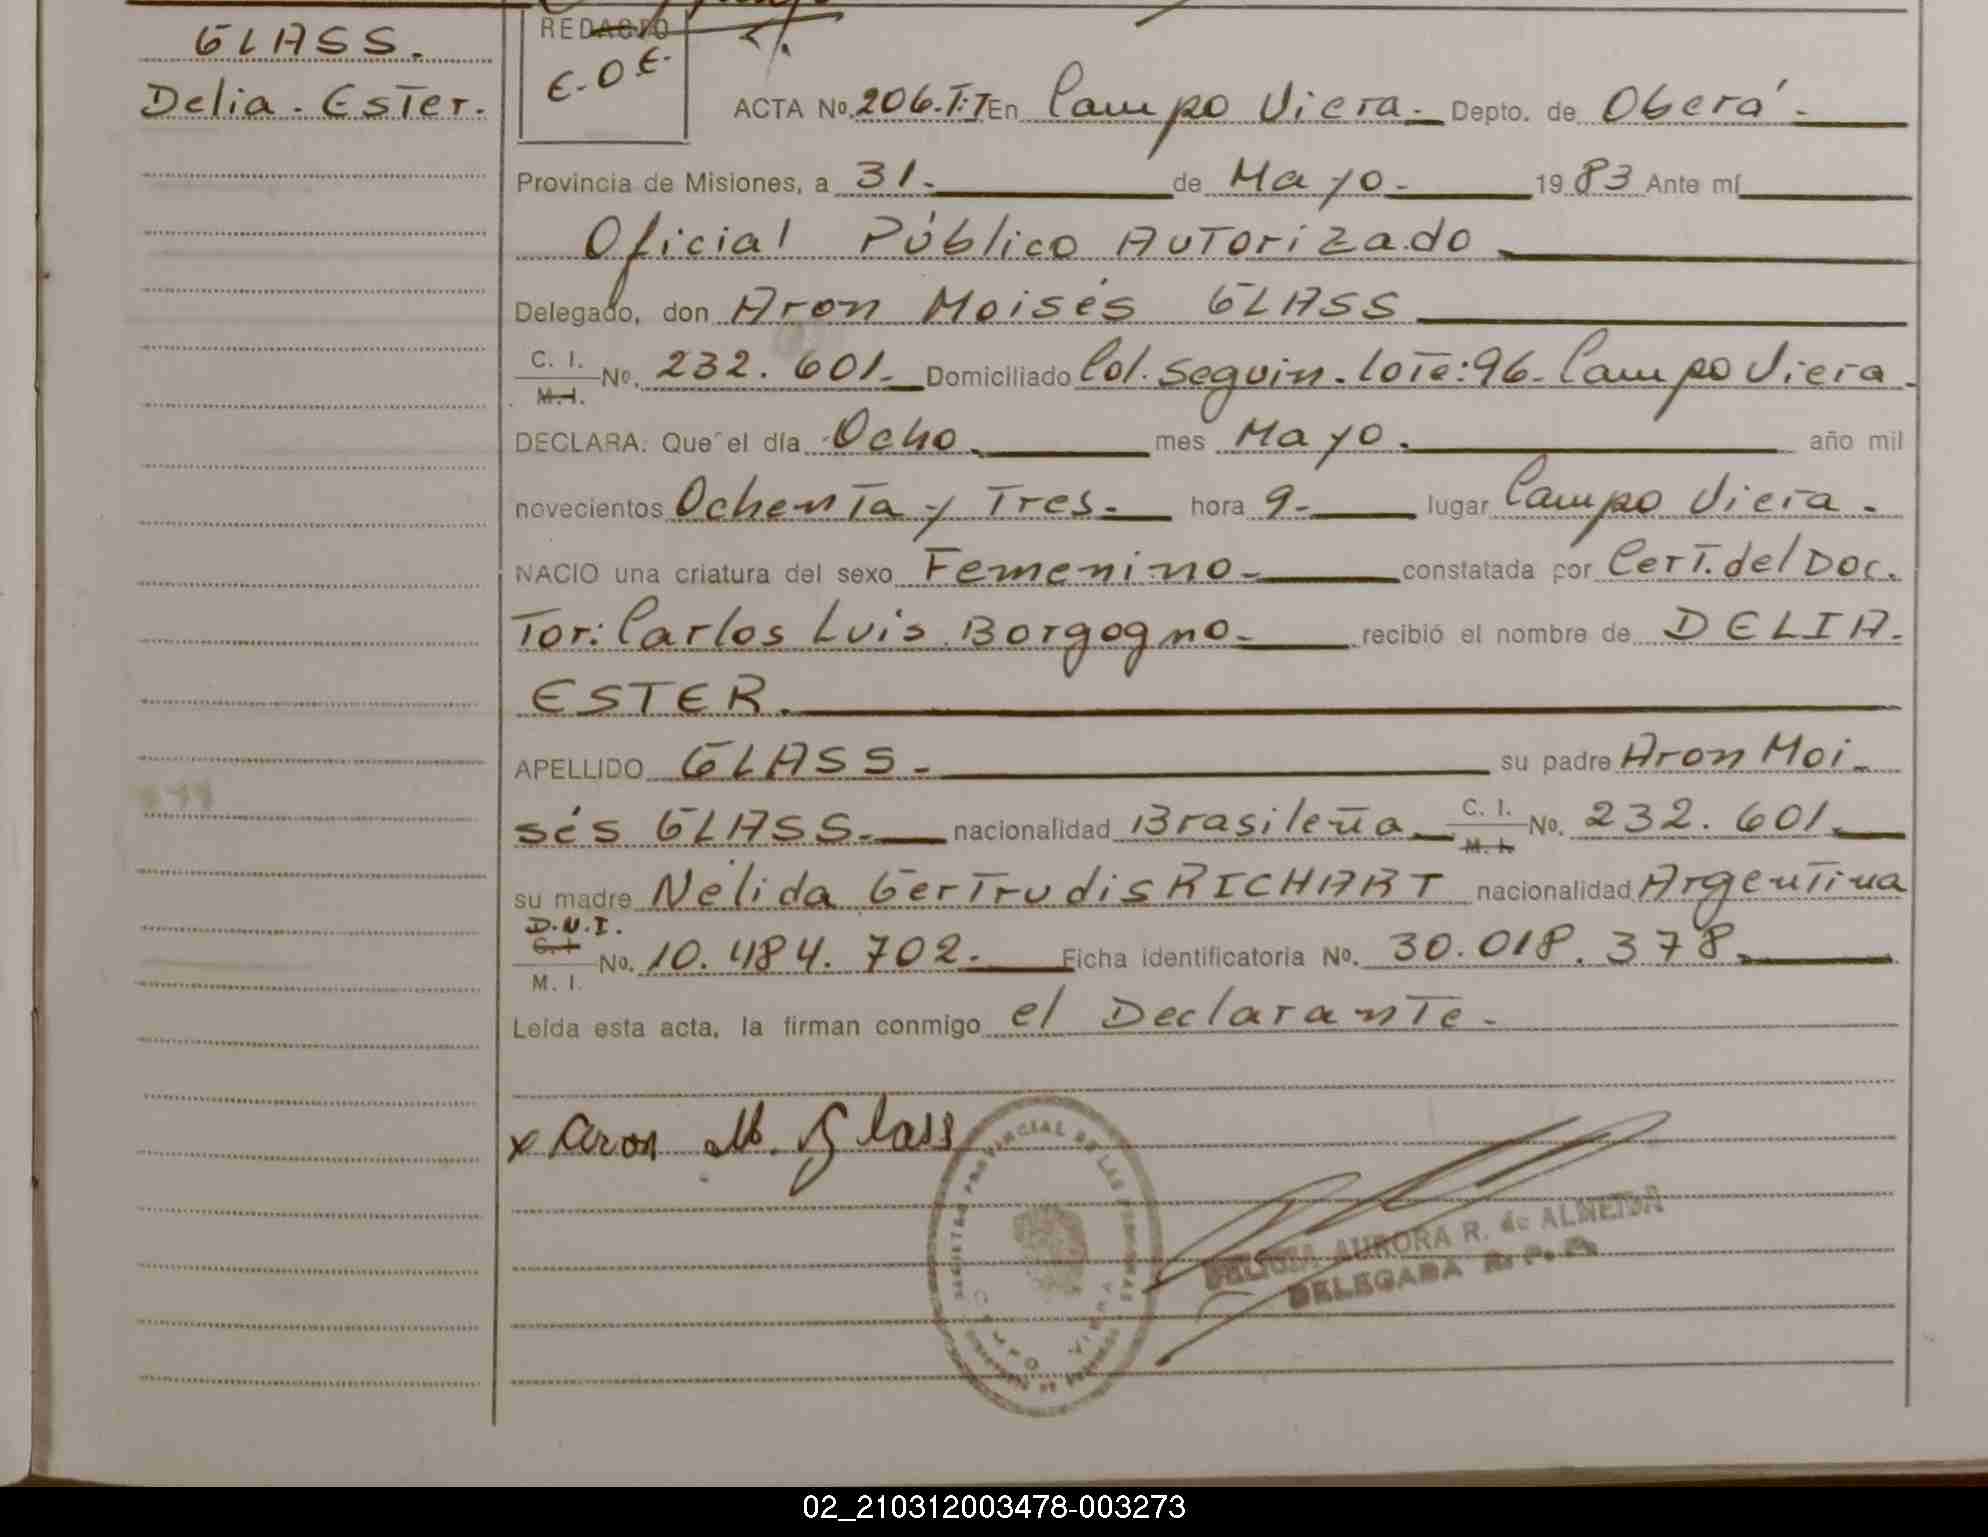 GLASS.
Delia. Ester.
REDACTO
E.O.E.
ACTA No. 206.T:I En Campo Viera.- Depto. de Oberá.-
Provincia de Misiones, a 31.- de Mayo.- 1983 Ante mí
Oficial Público Autorizado
Delegado, don Aron Moisés GLASS
C. I. M. I. No. 232.601.- Domiciliado Col. Seguin. lote:96. Campo Viera.
DECLARA: Que el día Ocho. mes Mayo. año mil
novecientos Ochenta y Tres.- hora 9.- lugar Campo Viera.
NACIO una criatura del sexo Femenino.- constatada por Cert. del Doc.
Tor: Carlos Luis Borgogno.- recibió el nombre de DELIA.
ESTER.
APELLIDO GLASS.- su padre Aron Moi-
sés GLASS.- nacionalidad Brasileña.- C. I. M. I. No. 232.601.
su madre Nélida Gertrudis RICHART nacionalidad Argentina
D.N.I. C. I. M. I. No. 10.484.702.- Ficha identificatoria No. 30.018.378.
Leída esta acta, la firman conmigo el Declarante.-
x Aron M. Glass
PROVINCIAL DE LAS PERSONAS
CAMPO VIERA
AURORA R. de ALMEIDA
DELEGADA R. P. P.
02_210312003478-003273